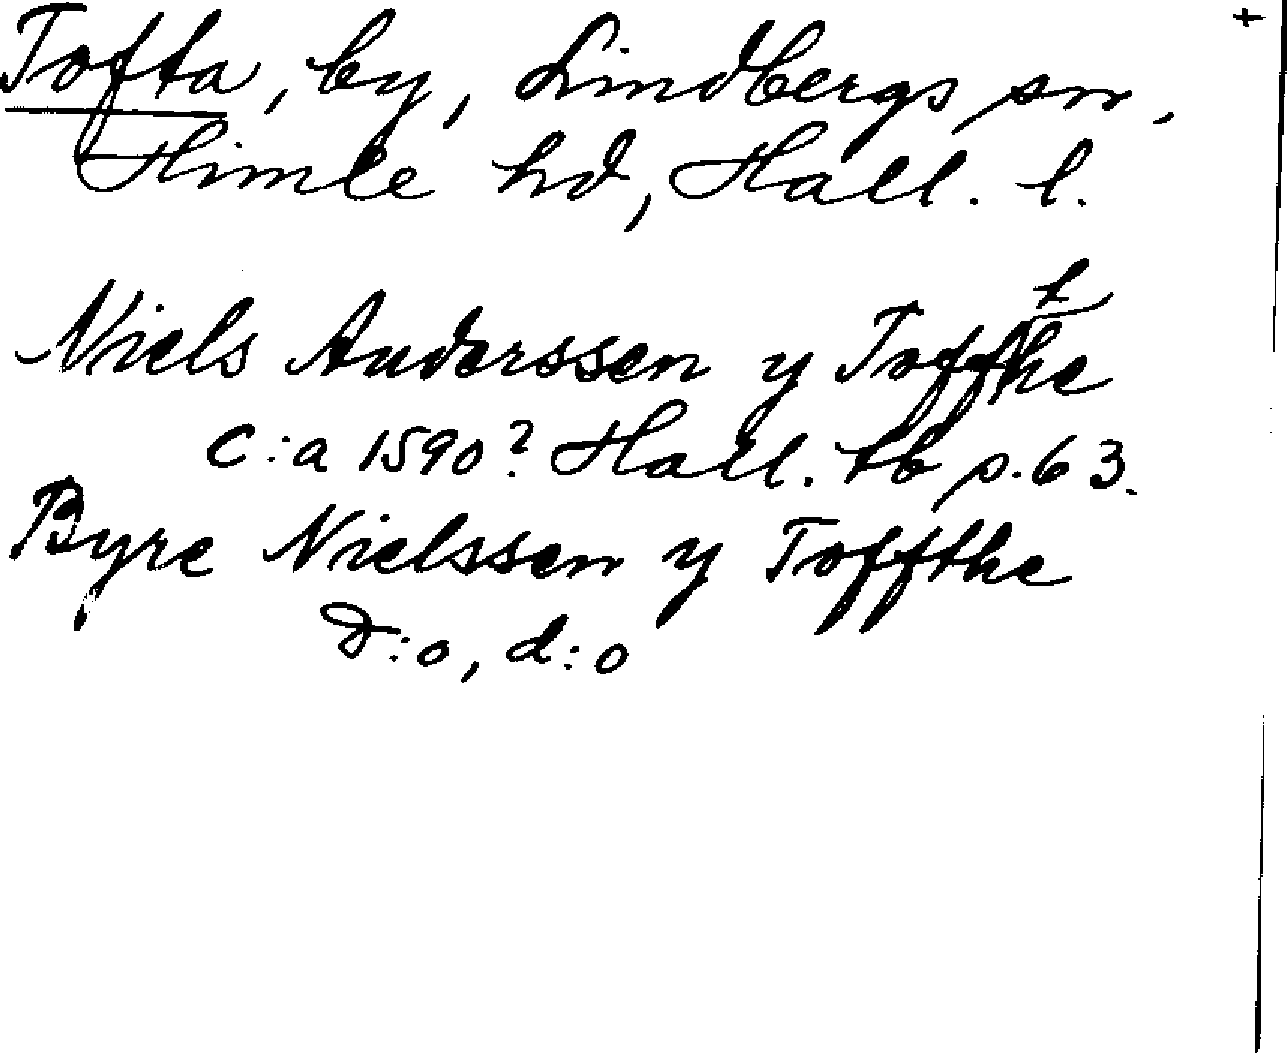 +
Tofta, by, Lindbergs sn,
Himle hd, Hall. l.
Niels Anderssen y Toffthe
c:a 1590? Hall. tb p. 63.
Byre Nielssen y Toffthe
D:o, d:o